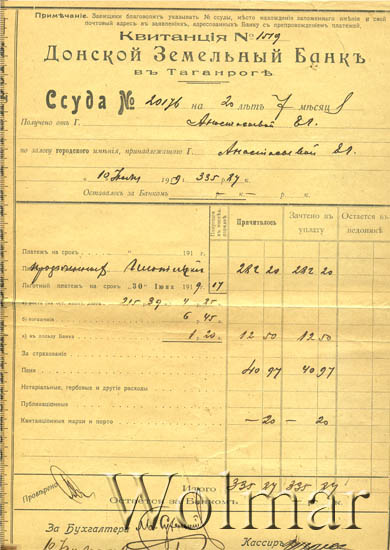 Примѣчаніе. Заемщики благоволятъ указывать № ссуды, мѣсто нахожденія заложеннаго имѣнія и свой
почтовый адресъ въ заявленіяхъ, адресованныхъ Банку съ препровожденіемъ платежей.
Квитанція № 1519
Донской Земельный Банкъ
въ Таганрогѣ.
Ссуда № 20176 на 20 лѣтъ 7 мѣсяц
Получено отъ Г. Анастасьевой Ел.
по залогу городского имѣнія, принадлежащаго Г. Анастасьевой Ел.
10 1919 335 р. 27 к.
Оставалось за Банкомъ р. к. р. к.
Причиталось
Зачтено въ уплату
Остается въ недоимкѣ
Платежъ на срокъ 191 г.
282 20 282 20
Льготный платежъ на срокъ "30" Іюня 1919 г. 17
215 39 4 85
б) погашенія 6 45
в) въ пользу Банка 1 20 12 50 12 50
За страхованіе
Пени 40 97 40 97
Нотаріальные, гербовые и другіе расходы
Публикаціонные
Квитанціонныя марки и порто — 20 — 20
Итого 335 27 335 27
Остается за Банкомъ
Провѣрено
За Бухгалтера
Кассиръ
Wolmar